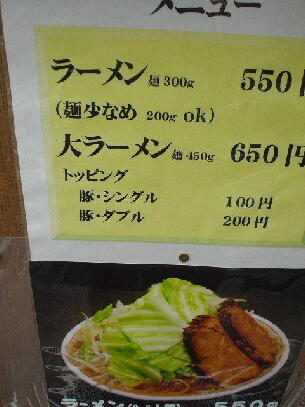 メニュー
ラーメン 麺300g 550円
(麺少なめ 200g ok)
大ラーメン 麺450g 650円
トッピング
豚・シングル 100円
豚・ダブル 200円
ラーメン